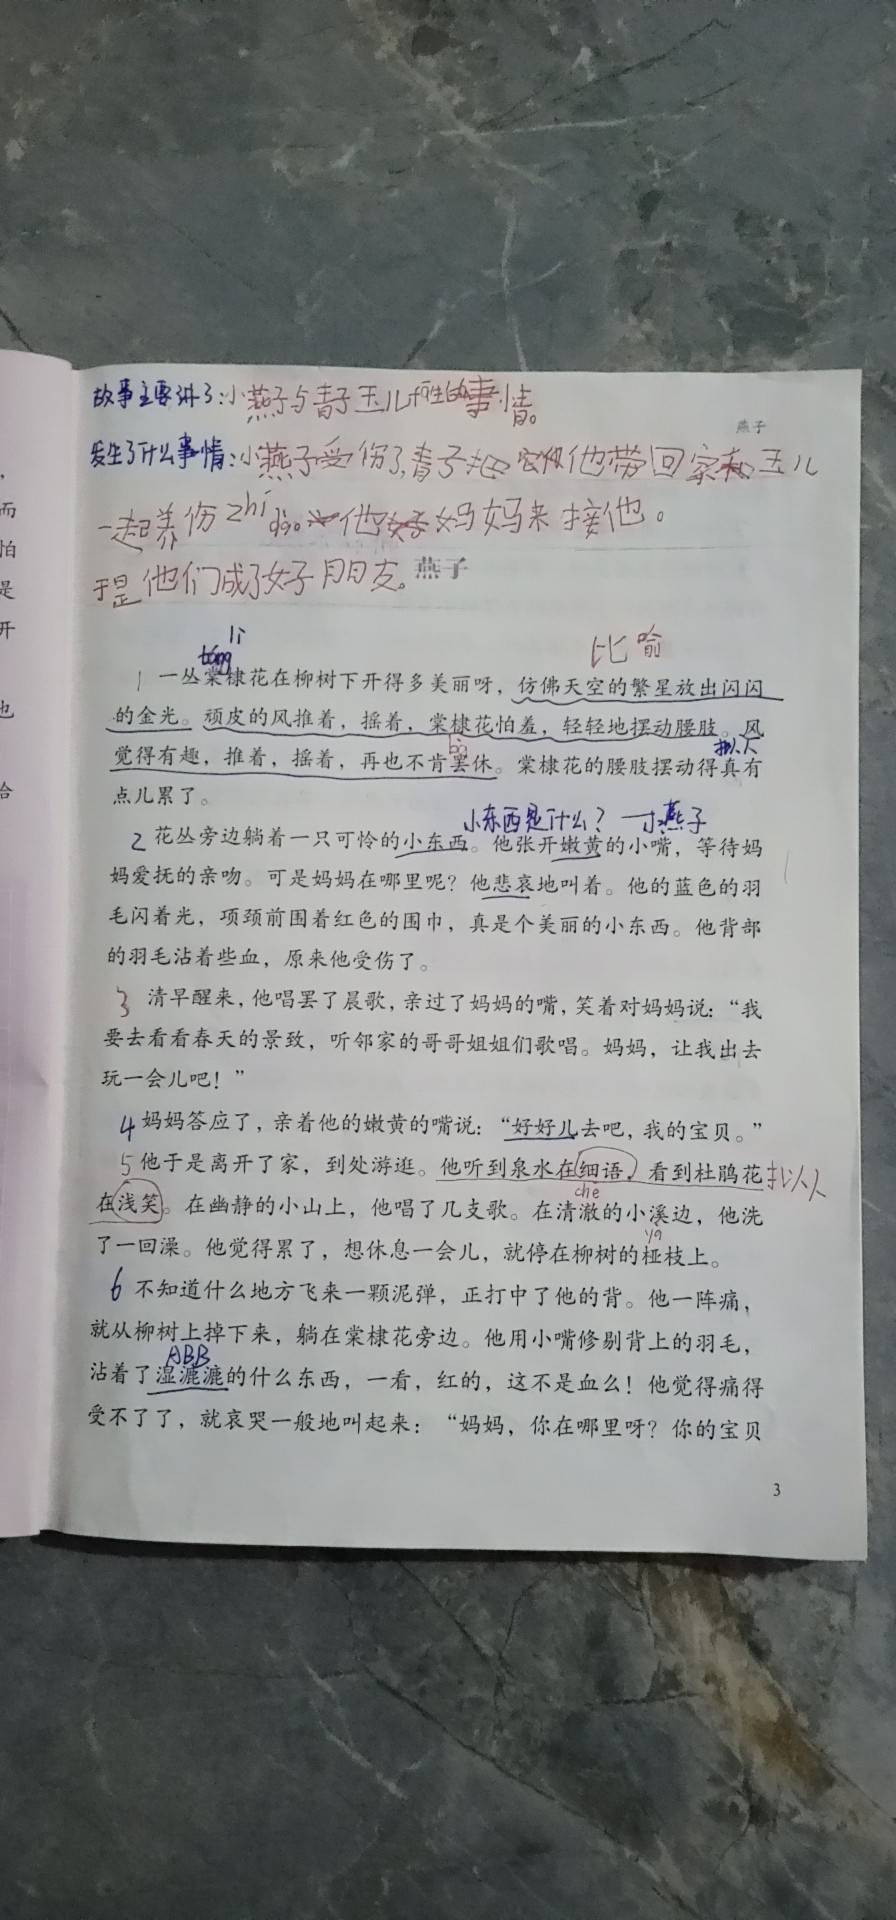 故事主要讲了:小燕子与青子玉儿所生的事情。
燕子
发生了什么事情:小燕子受伤了,青子把他带回家和玉儿
一起养伤zhi dao他妈妈来接他。
于是他们成了好朋友。
燕子
比喻
li
táng
1 一丛棠棣花在柳树下开得多美丽呀，仿佛天空的繁星放出闪闪
的金光。顽皮的风推着，摇着，棠棣花怕羞，轻轻地摆动腰肢。风
bà
拟人
觉得有趣，推着，摇着，再也不肯罢休。棠棣花的腰肢摆动得真有
点儿累了。
小东西是什么? 一小燕子
2 花丛旁边躺着一只可怜的小东西。他张开嫩黄的小嘴，等待妈
妈爱抚的亲吻。可是妈妈在哪里呢？他悲哀地叫着。他的蓝色的羽
毛闪着光，项颈前围着红色的围巾，真是个美丽的小东西。他背部
的羽毛沾着些血，原来他受伤了。
3 清早醒来，他唱罢了晨歌，亲过了妈妈的嘴，笑着对妈妈说：“我
要去看看春天的景致，听邻家的哥哥姐姐们歌唱。妈妈，让我出去
玩一会儿吧！”
4 妈妈答应了，亲着他的嫩黄的嘴说：“好好儿去吧，我的宝贝。”
5 他于是离开了家，到处游逛。他听到泉水在细语，看到杜鹃花
拟人
chè
在浅笑。在幽静的小山上，他唱了几支歌。在清澈的小溪边，他洗
yā
了一回澡。他觉得累了，想休息一会儿，就停在柳树的桠枝上。
6 不知道什么地方飞来一颗泥弹，正打中了他的背。他一阵痛，
就从柳树上掉下来，躺在棠棣花旁边。他用小嘴修剔背上的羽毛，
ABB
沾着了湿漉漉的什么东西，一看，红的，这不是血么！他觉得痛得
受不了了，就哀哭一般地叫起来：“妈妈，你在哪里呀？你的宝贝
3
而
怕
是
开
也
合